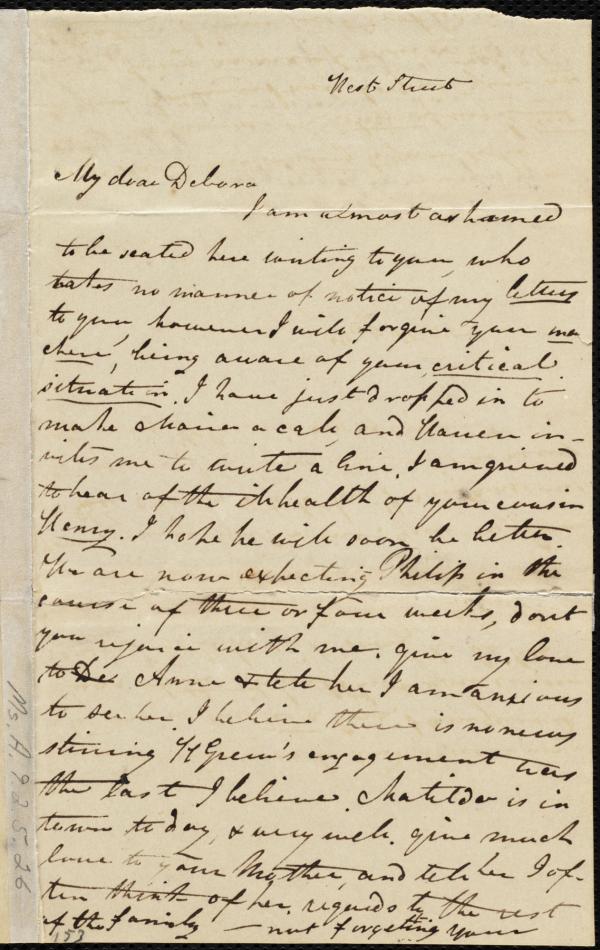 West Street
My dear Debora
I am almost ashamed
to be seated here writing to you, who
takes no manner of notice of my letters
to you, however I will forgive you ma
chere, being aware of your critical
situation. I have just dropped in to
make a call, and in-
vites me to write a line. I am grieved
to hear of the ill health of your cousin
Henry. I hope he will soon be better.
We are now expecting Philip in the
course of three or four weeks, dont
you rejoice with me. give my love
to Anne & tell her I am anxious
to see her. I believe there is no news
stirring Green's engagement was
the last I believe. Matilda is in
town to day, & very well. give much
love to your Mother, and tell her I of-
ten think of her. regards to the rest
of the family — not forgetting your
153
Ms. A. 9.2 5, 26